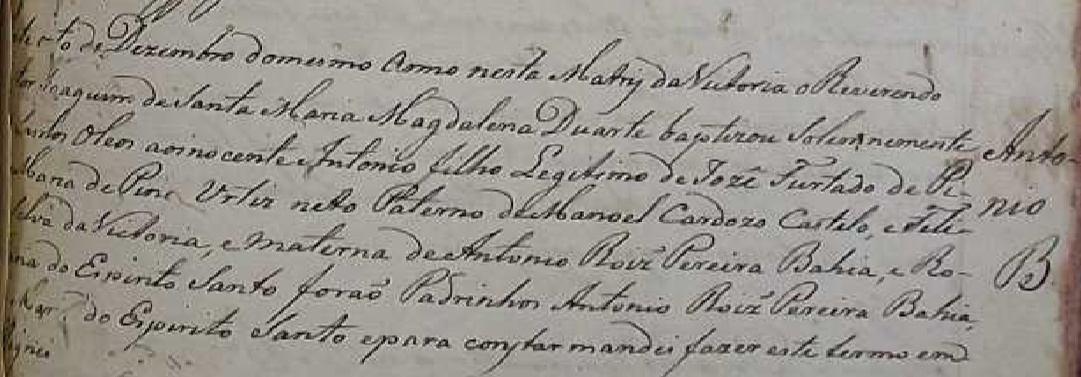 de Dezembro domesmo Anno nesta Matriz da Victoria o Reverendo
Joaquim de Santa Maria Magdalena Duarte baptizou Solemnemente
Oleos aoinocente Antonio filho Legitimo de Jozé Furtado de Pi-
de Pina Urtiz neto Paterno de Manoel Cardozo Castelo, e Feli-
da Victoria, e Materna de Antonio Roiz Pereira Bahia, e Ro-
do Espirito Santo foraõ Padrinhos Antonio Roiz Pereira Bahia,
do Espirito Santo epara constar mandei fazer este termo em
Anto-
nio
B.